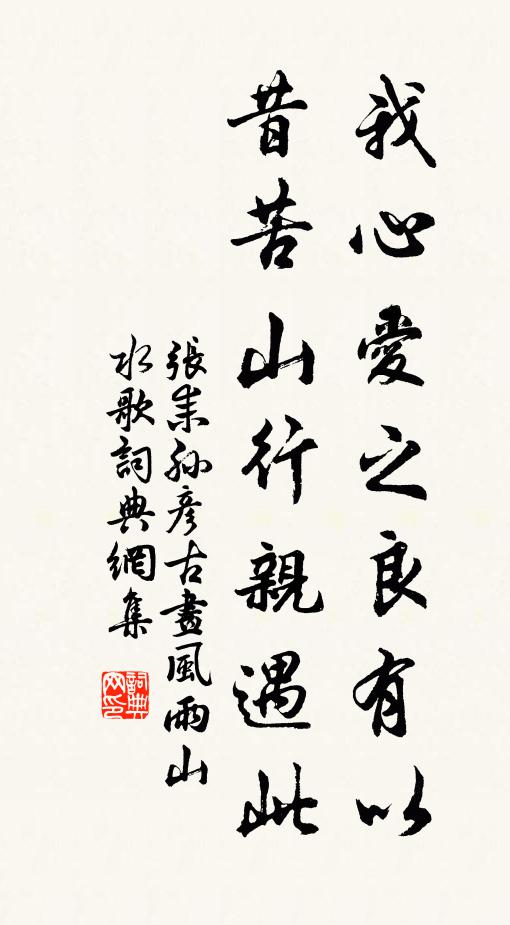 我心愛之良有以
昔苦山行親遇此
張耒孫彥古畫風雨山
水歌詞典網集
詞典
网印